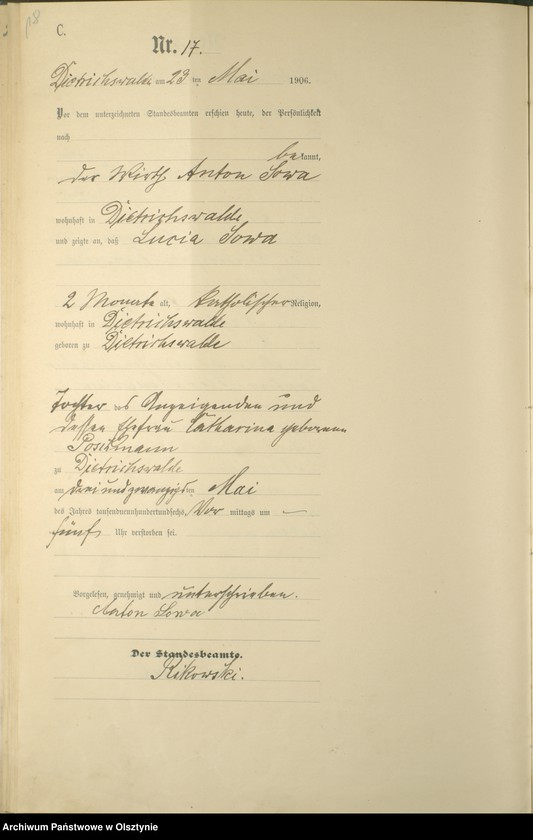 18
C.
Nr. 17.
Dietrichswalde am 23 ten Mai 1906.
Vor dem unterzeichneten Standesbeamten erschien heute, der Persönlichkeit
nach
bekannt,
der Wirth Anton Sowa
wohnhaft in Dietrichswalde
und zeigte an, daß Lucia Sowa
2 Monate alt, katholischer Religion,
wohnhaft in Dietrichswalde
geboren zu Dietrichswalde
Tochter des Anzeigenden und
dessen Ehefrau Catharina geborenen
Poschmann
zu Dietrichswalde
am dreiundzwanzigsten Mai
des Jahres tausendneunhundertundsechs, Vor mittags um —
fünf Uhr verstorben sei.
Vorgelesen, genehmigt und unterschrieben.
Anton Sowa
Der Standesbeamte.
Rikowski.
Archiwum Państwowe w Olsztynie